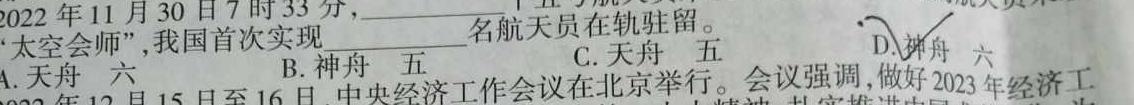 2022年11月30日7时33分,__________十五号航天
“太空会师”,我国首次实现__________名航天员在轨驻留。
A.天舟 六 B.神舟 五 C.天舟 五 D.神舟 六
12月15日至16日,中央经济工作会议在北京举行。会议强调,做好2023年经济工